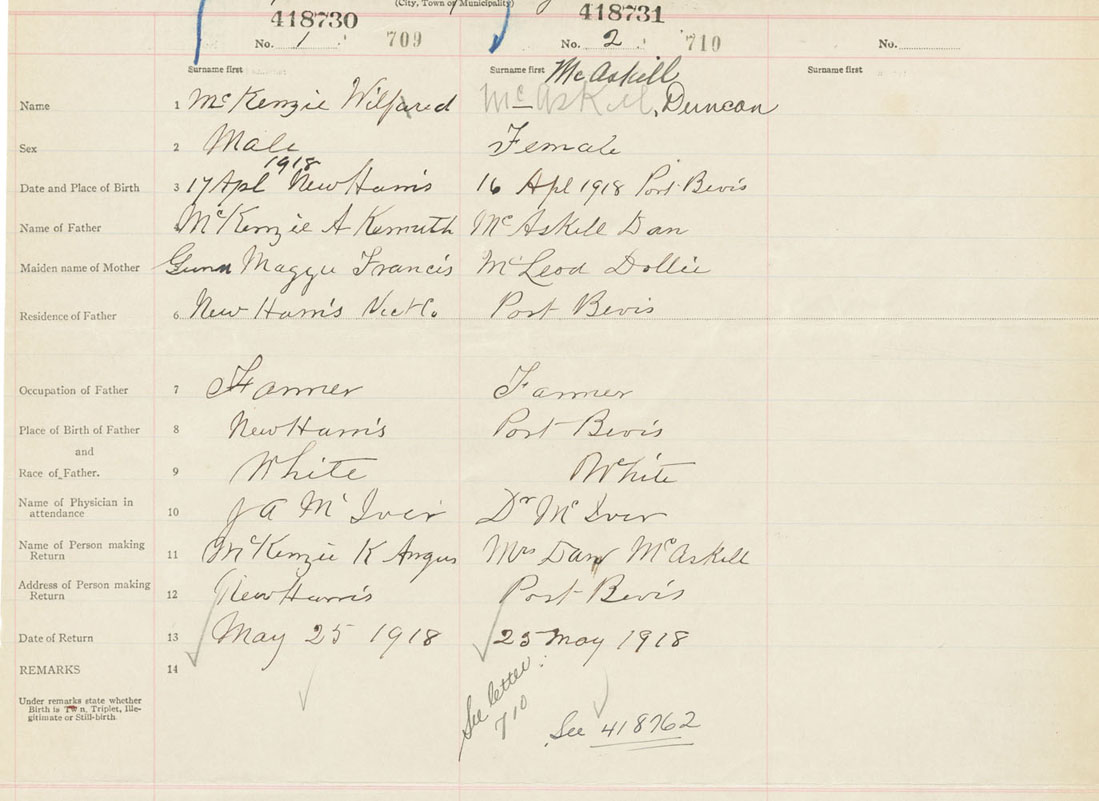 (City, Town or Municipality)
418730 418731
No. 1 709 No. 2 710 No.
Surname first Surname first McAskill Surname first
Name 1 McKenzie Wilfared McAskill, Duncan
Sex 2 Male Female
1918
Date and Place of Birth 3 17 Apl New Harris 16 Apl 1918 Port Bevis
Name of Father McKenzie A Kennuth McAskill Dan
Maiden name of Mother Gunn Maggie Francis McLeod Dollie
Residence of Father 6 New Harris Vict Co. Port Bevis
Occupation of Father 7 Farmer Farmer
Place of Birth of Father 8 New Harris Port Bevis
and
Race of Father. 9 White White
Name of Physician in
attendance 10 J A McIver Dr McIver
Name of Person making
Return 11 McKenzie K Angus Mrs Dan McAskill
Address of Person making
Return 12 New Harris Port Bevis
Date of Return 13 May 25 1918 25 May 1918
REMARKS 14
Under remarks state whether
Birth is Twin, Triplet, Ille-
gitimate or Still-birth.
See letter
710
See 418762